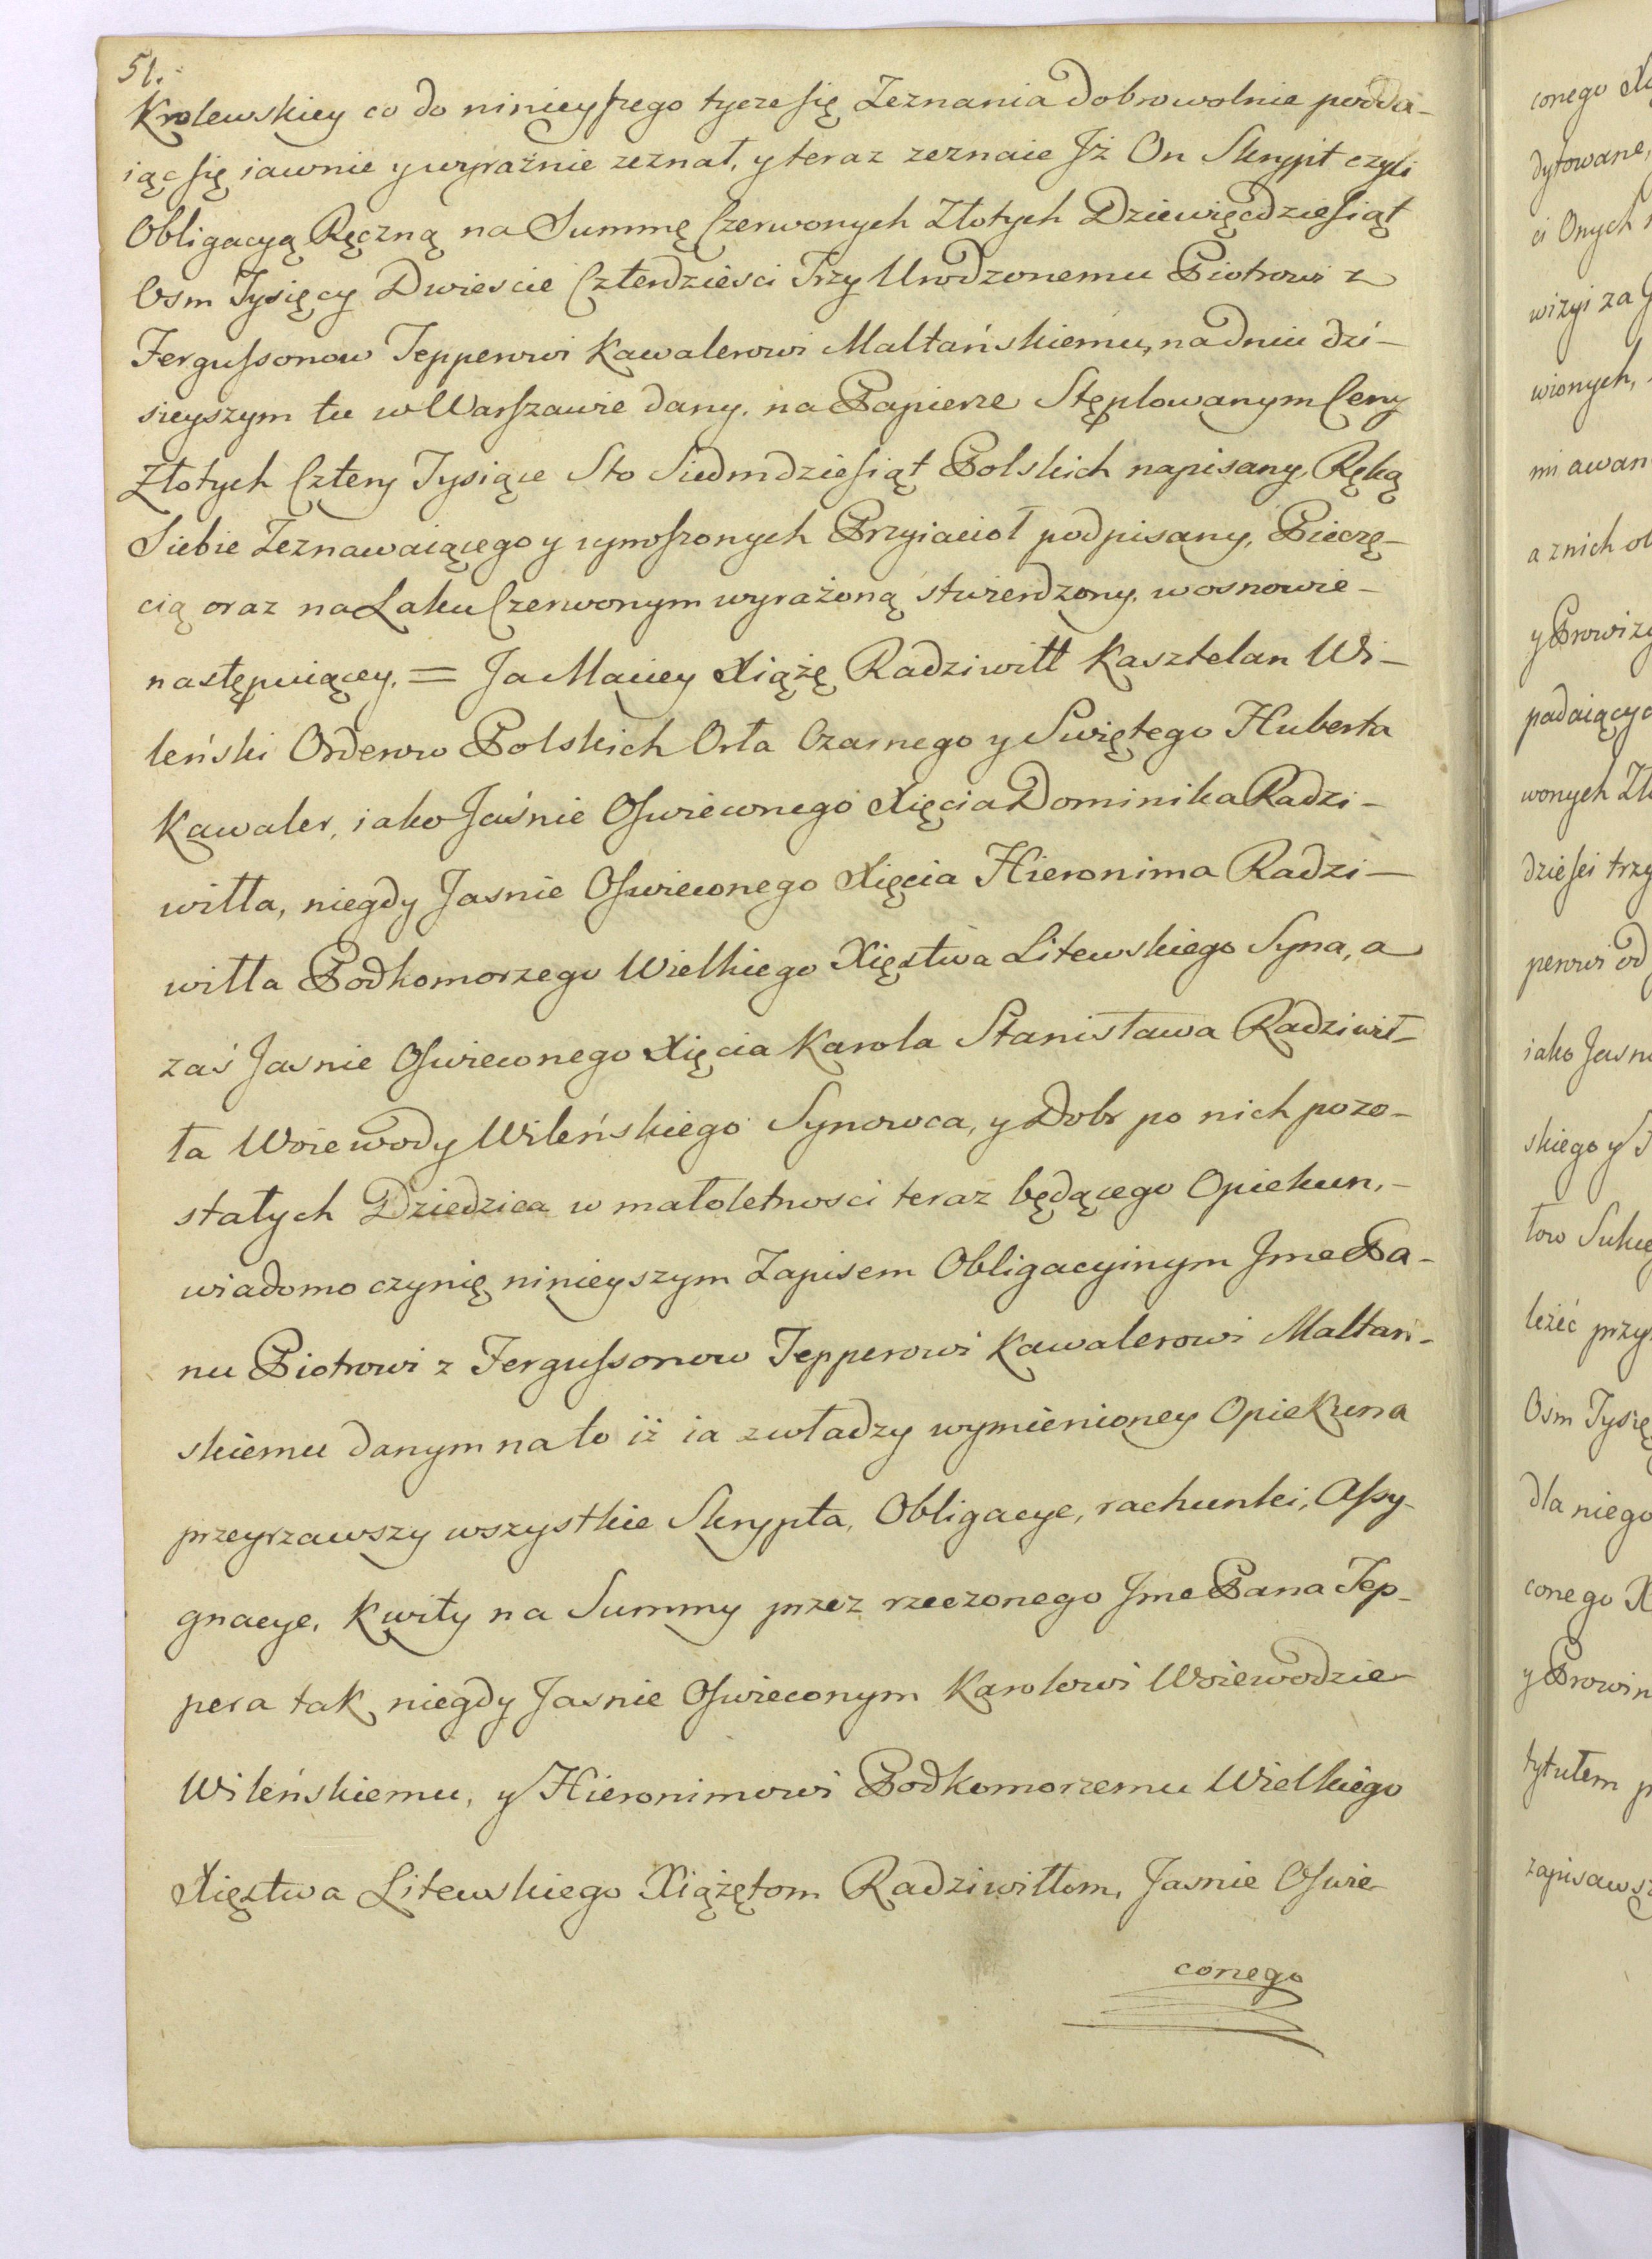 51.
Krolewskiey co do ninieyszego tycze się Zeznania dobrowolnie podda-
iąc się iawnie y wyraźnie zeznał, y teraz zeznaie Jż On Skrypt czyli
Obligacyą Ręczną na Summę Czerwonych Złotych Dziewięcdziesiąt
Osm Tysięcy Dwiescie Czterdziesci Trzy Urodzonemu Piotrowi z
Fergussonow Tepperowi Kawalerowi Maltańskiemu, na dniu dzi-
sieyszym tu w Warszawie dany, na Papierze Stęplowanym Ceny
Złotych Cztery Tysiące Sto Siedmdziesiąt Polskich napisany, Ręką
Siebie Zeznawaiącego y uproszonych Przyiacioł podpisany, Pieczę-
cią oraz na Laku Czerwonym wyrażoną stwierdzony, w osnowie-
następuiącey. = Ja Maciey Xiążę Radziwiłł Kasztelan Wi-
leński Orderow Polskich Orła Czarnego y Swiętego Huberta
Kawaler, iako Jaśnie Oswieconego Xięcia Dominika Radzi-
wiłła, niegdy Jasnie Oswieconego Xięcia Hieronima Radzi-
wiłła Podkomorzego Wielkiego Xięztwa Litewskiego Syna, a
zaś Jasnie Oswieconego Xięcia Karola Stanisława Radziwił-
ła Woiewody Wileńskiego Synowca, y Dobr po nich pozo-
stałych Dziedzica w małoletnosci teraz będącego Opiekun,-
wiadomo czynię ninieyszym Zapisem Obligacyinym Jme Pa-
nu Piotrowi z Fergussonow Tepperowi Kawalerowi Maltań-
skiemu danym na to iż ia z władzy wymienioney Opiekuna
przeyrzawszy wszystkie Skrypta, Obligacye, rachunki, Assy-
gnacye, Kwity na Summy przez rzeczonego Jme Pana Tep-
pera tak niegdy Jasnie Oswieconym Karolowi Woiewodzie
Wileńskiemu, y Hieronimowi Podkomorzemu Wielkiego
Xięztwa Litewskiego Xiążętom Radziwiłłom, Jasnie Oswie
conego
conego
dytowane,
ci Onych
wizyi za
wionych,
mi awan
a z nich
y Prowizy
padaiący
wonych Zł
dziesci trzy
perowi od
iako Jasn
skiego y
tow Sukce
leżeć przy
Osm Tysię
dla niego
conego X
y Prowin
tytułem p
zapisawsz